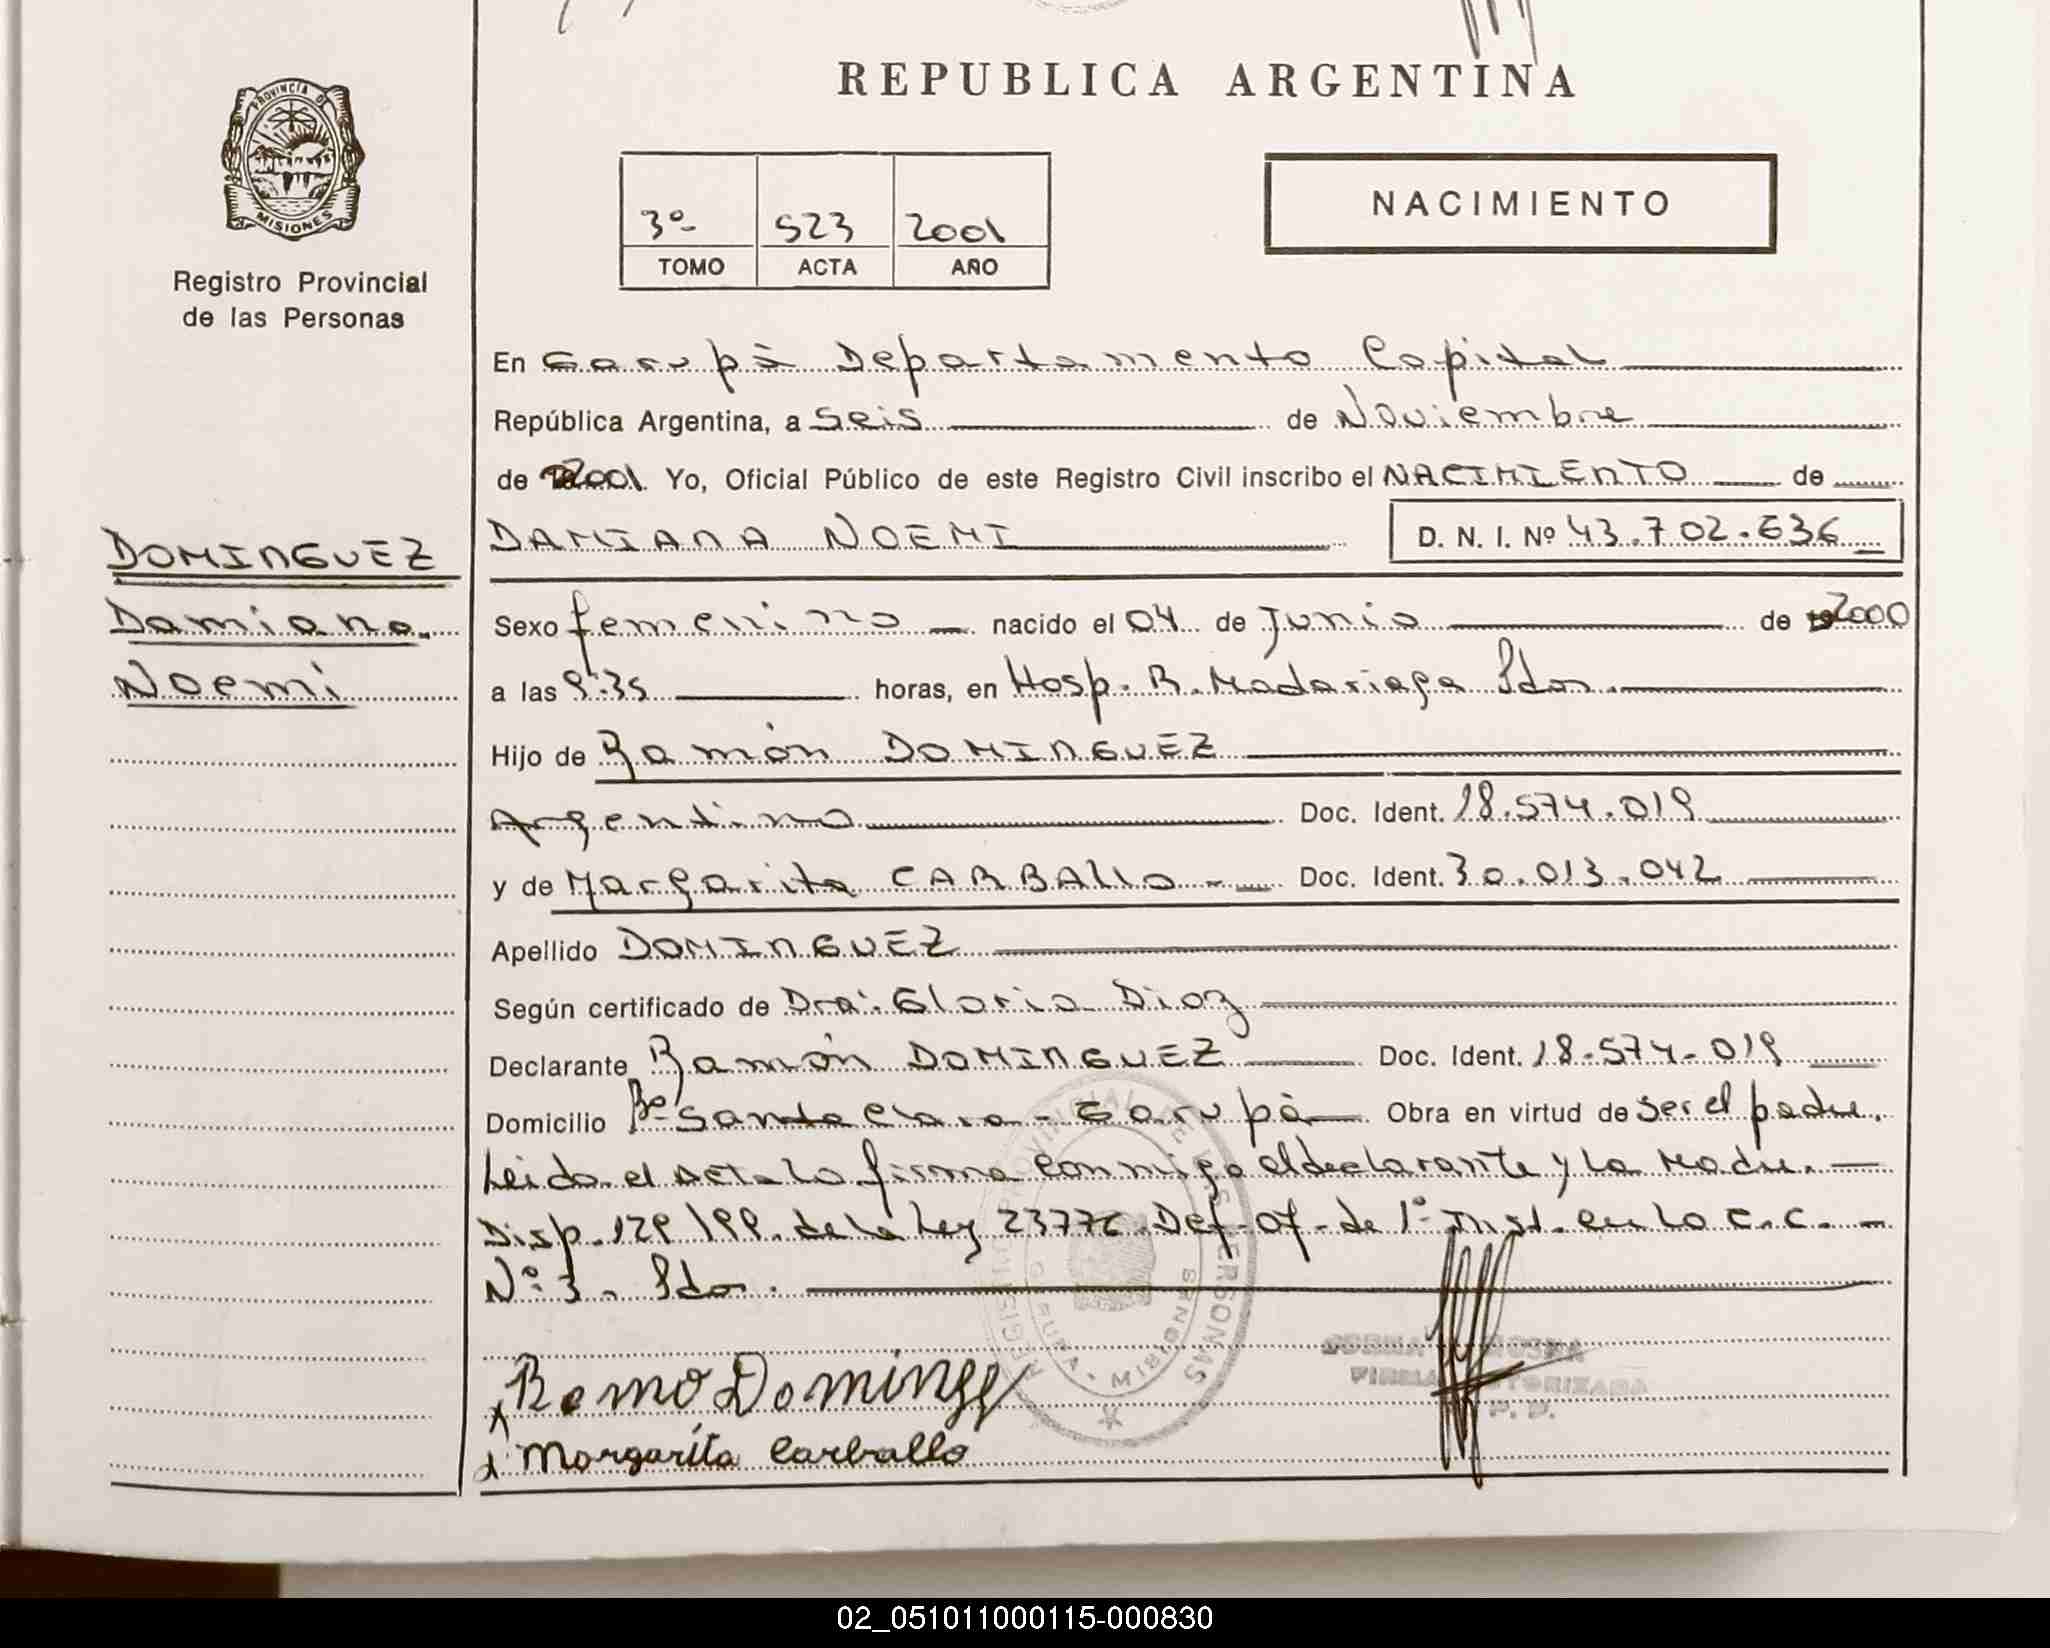 REPUBLICA ARGENTINA
PROVINCIA DE
MISIONES
Registro Provincial
de las Personas
3º 523 2001
TOMO ACTA AÑO
NACIMIENTO
En Garupà Departamento Capital
República Argentina, a Seis de Noviembre
de 2001 Yo, Oficial Público de este Registro Civil inscribo el NACIMIENTO de
DAMIANA NOEMI D. N. I. Nº 43.702.636
DOMINGUEZ
Damiana
Noemi
Sexo femenino nacido el 04 de Junio de 2000
a las 9:35 horas, en Hosp. R. Madariaga Pdas.
Hijo de Ramón DOMINGUEZ
Argentino Doc. Ident. 18.574.019
y de Margarita CARBALLO Doc. Ident. 30.013.042
Apellido DOMINGUEZ
Según certificado de Dra. Gloria Diaz
Declarante Ramón DOMINGUEZ Doc. Ident. 18.574.019
Domicilio Bº Santa Clara - Garupà Obra en virtud de ser el padre.
Leida el acta la firma conmigo el declarante y la Madre.
Disp. 129/99. de la Ley 23776 Def. Of. de 1º Inst. en lo C.C.
Nº 3. Pdas.
REGISTRO PROVINCIAL DE LAS PERSONAS
GARUPA - MISIONES
FIRMA AUTORIZADA
Ramó Doming
Margarita Carballo
02_051011000115-000830